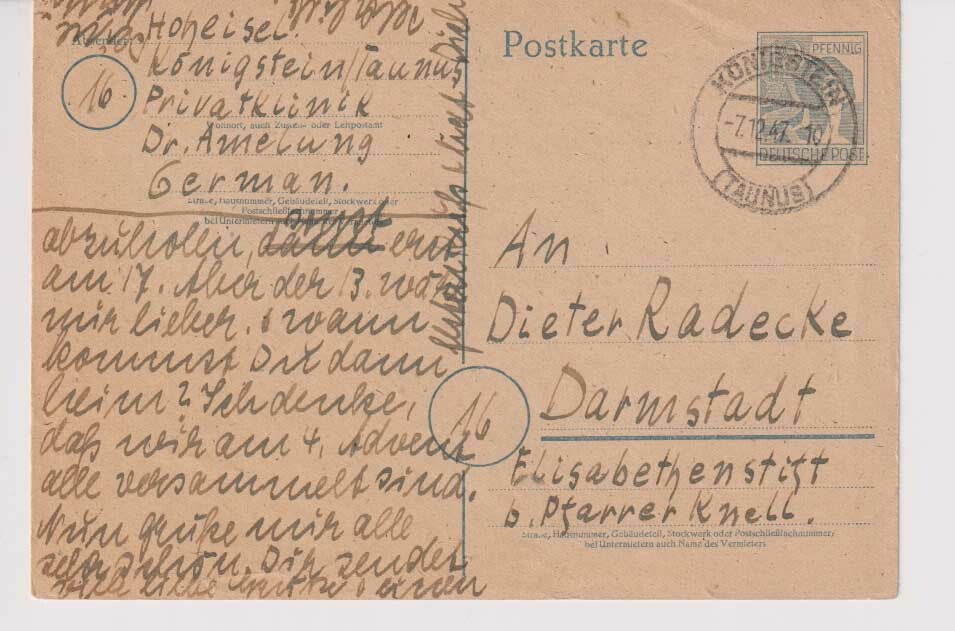 Postkarte
PFENNIG
DEUTSCHE POST
KÖNIGSTEIN
-7.12.47. 10
(TAUNUS)
Absender:
Hoheisel.
Königstein/Taunus
Privatklinik
Wohnort, auch Zustell- oder Leitpostamt
Dr. Amelung
German.
16
Straße, Hausnummer, Gebäudeteil, Stockwerk oder
Postschließfachnummer
bei Untermietern
sonst
abzuholen, erst
am 17. Aber der 13. wäre
mir lieber. wann
kommst Du dann
heim? Ich denke,
daß wir am 4. Advent
alle versammelt sind.
Nun grüße mir alle
sehr schön. Dir sendet
viele liebe Grüße einen
An
Dieter Radecke
Darmstadt
16
Elisabethenstift
b. Pfarrer Knell.
Straße, Hausnummer, Gebäudeteil, Stockwerk oder Postschließfachnummer;
bei Untermietern auch Name des Vermieters